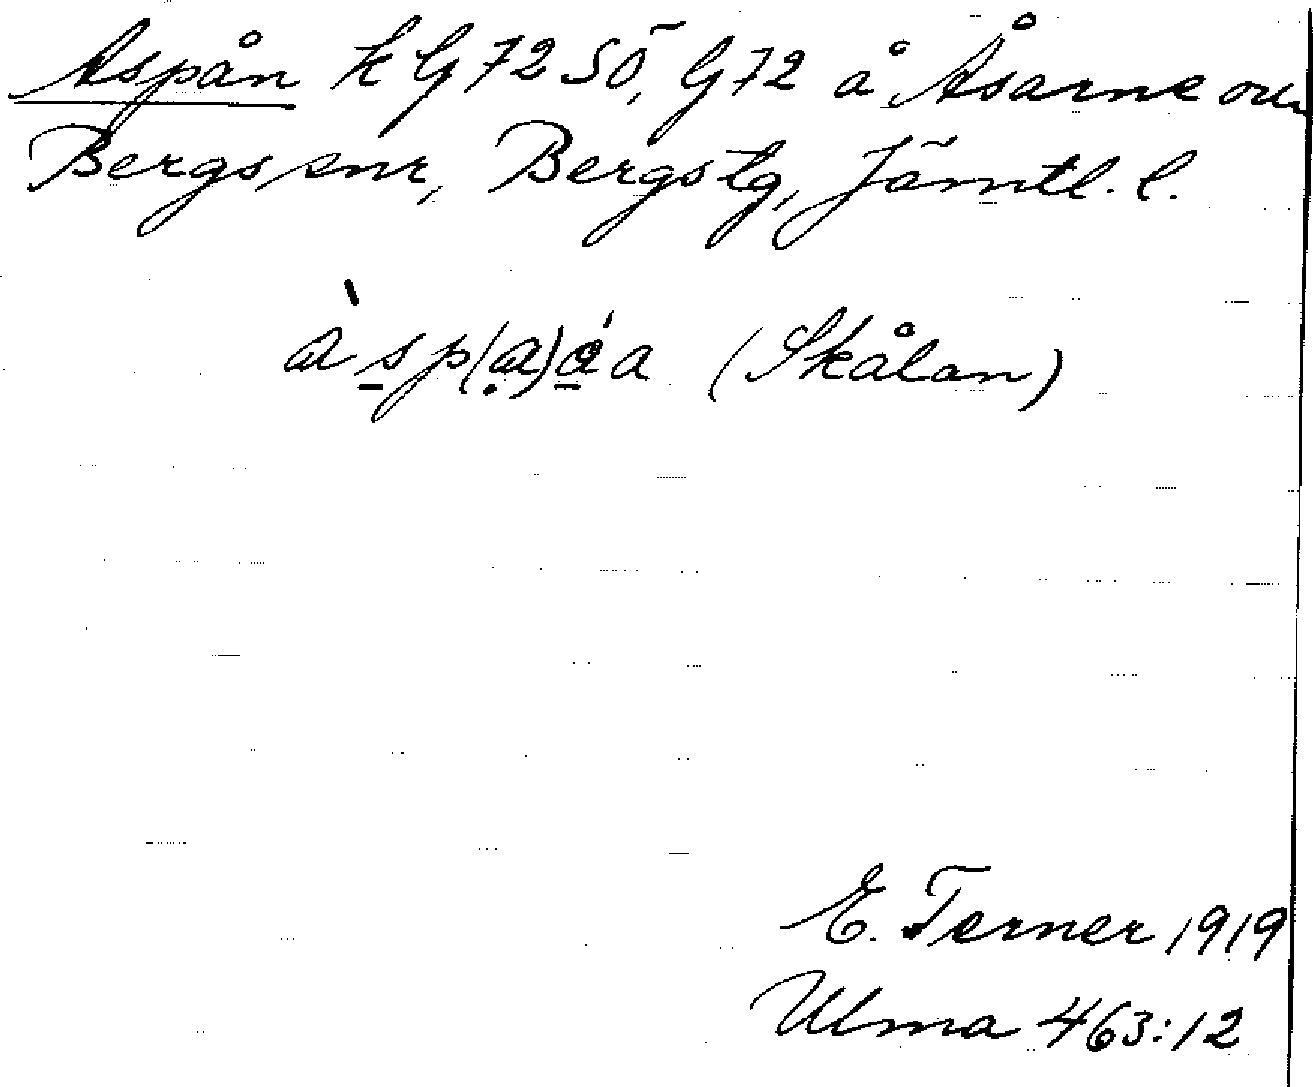 Aspån k G 72 SÖ, G 72 å Åsarne och
Bergs snr, Bergs tg, Jämtl. l.
(Skålan)
E. Terner 1919
Ulma 463:12